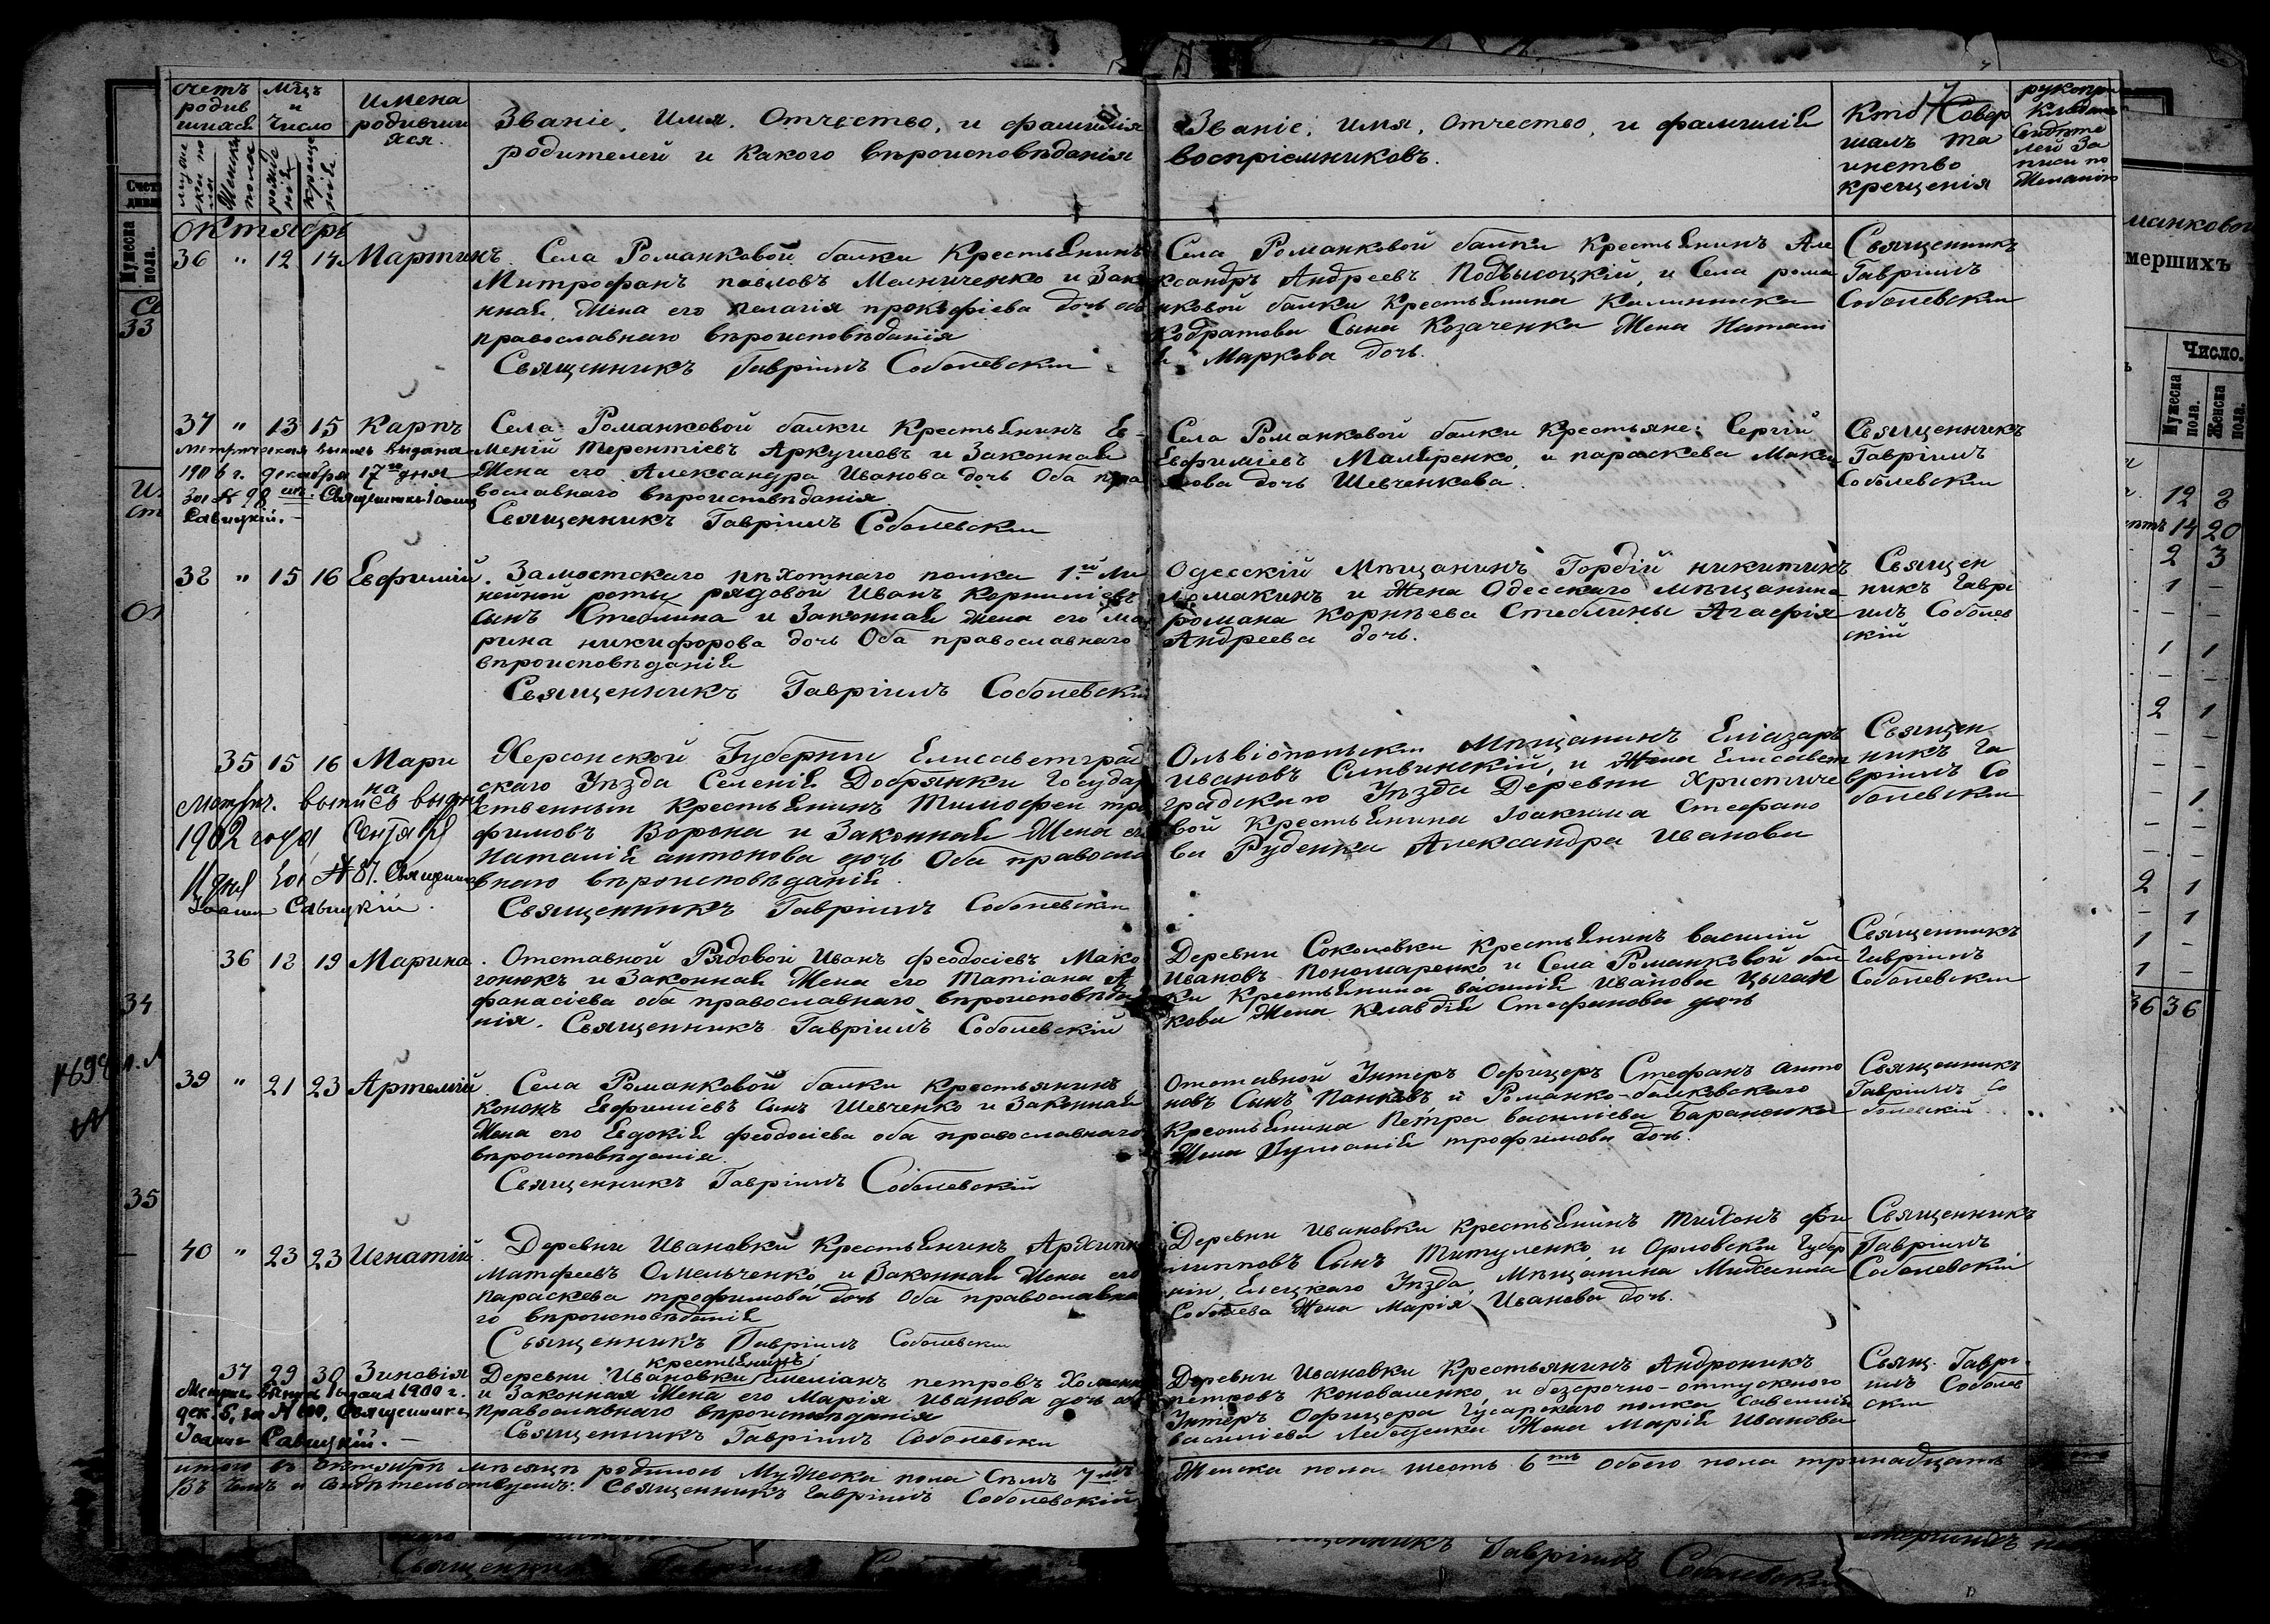 счетъ родив шихся
мцъ и число
имена родивших яся.
Званіе, имя, Отчество, и фамилія
родителей и какого вѣроисповѣданія
Званіе, имя, отчество, и фамилія
воспріемниковъ.
Кто Совер
шалъ та
инство
крещенія
17
октябрь
36 " 12 14 Мартинъ
Села Романковой балки Крестьянинъ
Митрофанъ павловъ Мельниченко и Зако
нная Жена его пелагія прокофіева дочь оба
православнаго вѣроисповѣданія
Священникъ Гавріилъ Соболевскій
Села Романковой балки крестьянинъ Але
ксандръ Андреевъ Подвысоцкій, и Села рома
нковой балки Крестьянина Калинника
Кодратова Сына Козаченка Жена Натали
я Маркова дочь.
Священникъ
Гавріилъ
Соболевскій
37 " 13 15 Карпъ
метрическая выпись выдана
1906 г. декабря 17го дня
За № 98 Священникъ Іоаннъ
Савицкій.
Села Романковой балки Крестьянинъ Ев-
меній Терентіевъ Аркушовъ и Законная
Жена его Александра Иванова дочь Оба пра
вославнаго вѣроисповѣданія
Священникъ Гавріилъ Соболевскій
Села Романковой балки Крестьяне: Сергій
Евфиміевъ Маляренко, и параскева Макси
мова дочь Шевченкова.
Священникъ
Гавріилъ
Соболевскій
38 " 15 16 Евфимій.
Замостскаго пѣхотнаго полка 1й Ли
нейной роты рядовой Иванъ Корниліевъ
Сынъ Стеблина и Законная Жена его Ма
рина никифорова дочь Оба православнаго
вѣроисповѣданія
Священникъ Гавріилъ Соболевскій
Одесскій Мѣщанинъ Гордій никитинъ
Ломакинъ и Жена Одесскаго мѣщанина
романа Корнѣева Стеблины Агафія
Андреева дочь.
Священ
никъ Гаврі
илъ Соболев
скій
35 15 16 Мари
на
Метрич. выпись выдана
1902 года Сентября
11 дня за № 81. Священникъ
Іоаннъ Савицкій.
Херсонской Губерніи Елисаветград
скаго Уѣзда Селенія Добрянки Государ
ственный крестьянинъ Тимофей тро
фимовъ Ворона и Законная Жена его
Наталія антонова дочь Оба правосла
внаго вѣроисповѣданія.
Священникъ Гавріилъ Соболевскій
Ольвіопольскій Мѣщанинъ Еліазаръ
Ивановъ Сливинскій, и Жена Елисавет
градскаго Уѣзда Деревни Христиче
вой Крестьянина Іоакима Стефано
ва Руденка Александра Иванова
Священ
никъ Га
вріилъ Со
болевскій
36 18 19 Марина
Отставной Рядовой Иванъ феодосіевъ Мако
гонюкъ и Законная Жена его Татіана А
фанасіева оба православнаго вѣроисповѣда
нія. Священникъ Гавріилъ Соболевскій
Деревни Соколовки крестьянинъ василий
Ивановъ Пономаренко и Села Романковой бал
ки Крестьянина василія Иванова Цыган
кова Жена Клавдія Стефанова дочь
Священникъ
Гавріилъ
Соболевскій
39 " 21 23 Артемій
Села Романковой балки крестьянинъ
Кононъ Евфиміевъ Сынъ Шевченко и Законная
Жена его Евдокія феодосіева оба православнаго
вѣроисповѣданія.
Священникъ Гавріилъ Соболевскій
Отставной Унтеръ Офицеръ Стефанъ анто
новъ Сынъ Панковъ и Романко-балковскаго
Крестьянина Петра василіева Баранюка
Жена трофимова дочь.
Священникъ
Гавріилъ Со
болевскій
40 " 23 23 Игнатій
Деревни Ивановки Крестьянинъ Архипъ
Матфеевъ Омельченко и Законная Жена его
параскева трофимова дочь Оба православна
го вѣроисповѣданія
Священникъ Гавріилъ Соболевскій
Деревни Ивановки Крестьянинъ Тихонъ фи
липповъ Сынъ Титуленко, и Орловской Губер
ніи, Елецкаго Уѣзда, Мѣщанина Михаила
Соболева Жена Марія Иванова дочь.
Священникъ
Гавріилъ
Соболевскій
37 29 30 Зиновія
Метрич. выпись выдана 1900 г.
дек. 5, за № 100, Священникъ
Іоаннъ Савицкій.
крестьянинъ
Деревни Ивановки Емеліанъ петровъ
и Законная Жена его Марія Иванова дочь оба
православнаго вѣроисповѣданія
Священникъ Гавріилъ Соболевскій
Деревни Ивановки Крестьянинъ Андроникъ
петровъ Коноваленко, и безсрочно-отпускного
Унтеръ Офицера Гусарскаго полка Савелія
василіева Лебеденка Жена Марія Иванова
Свящ. Гаврі-
илъ Соболев
скій
итого въ октябрѣ мѣсяцѣ родилось Мужеска пола Семь 7мь
Женска пола шесть 6ть обоего пола тринадцать
Въ чемъ и свидѣтельствуемъ: Священникъ Гавріилъ Соболевскій
Священникъ Гавріилъ Соболевскій
манковой
мершихъ
Число.
Мужеска пола.
Женска пола.
12
14 20
2 3
36 36
33
34
35